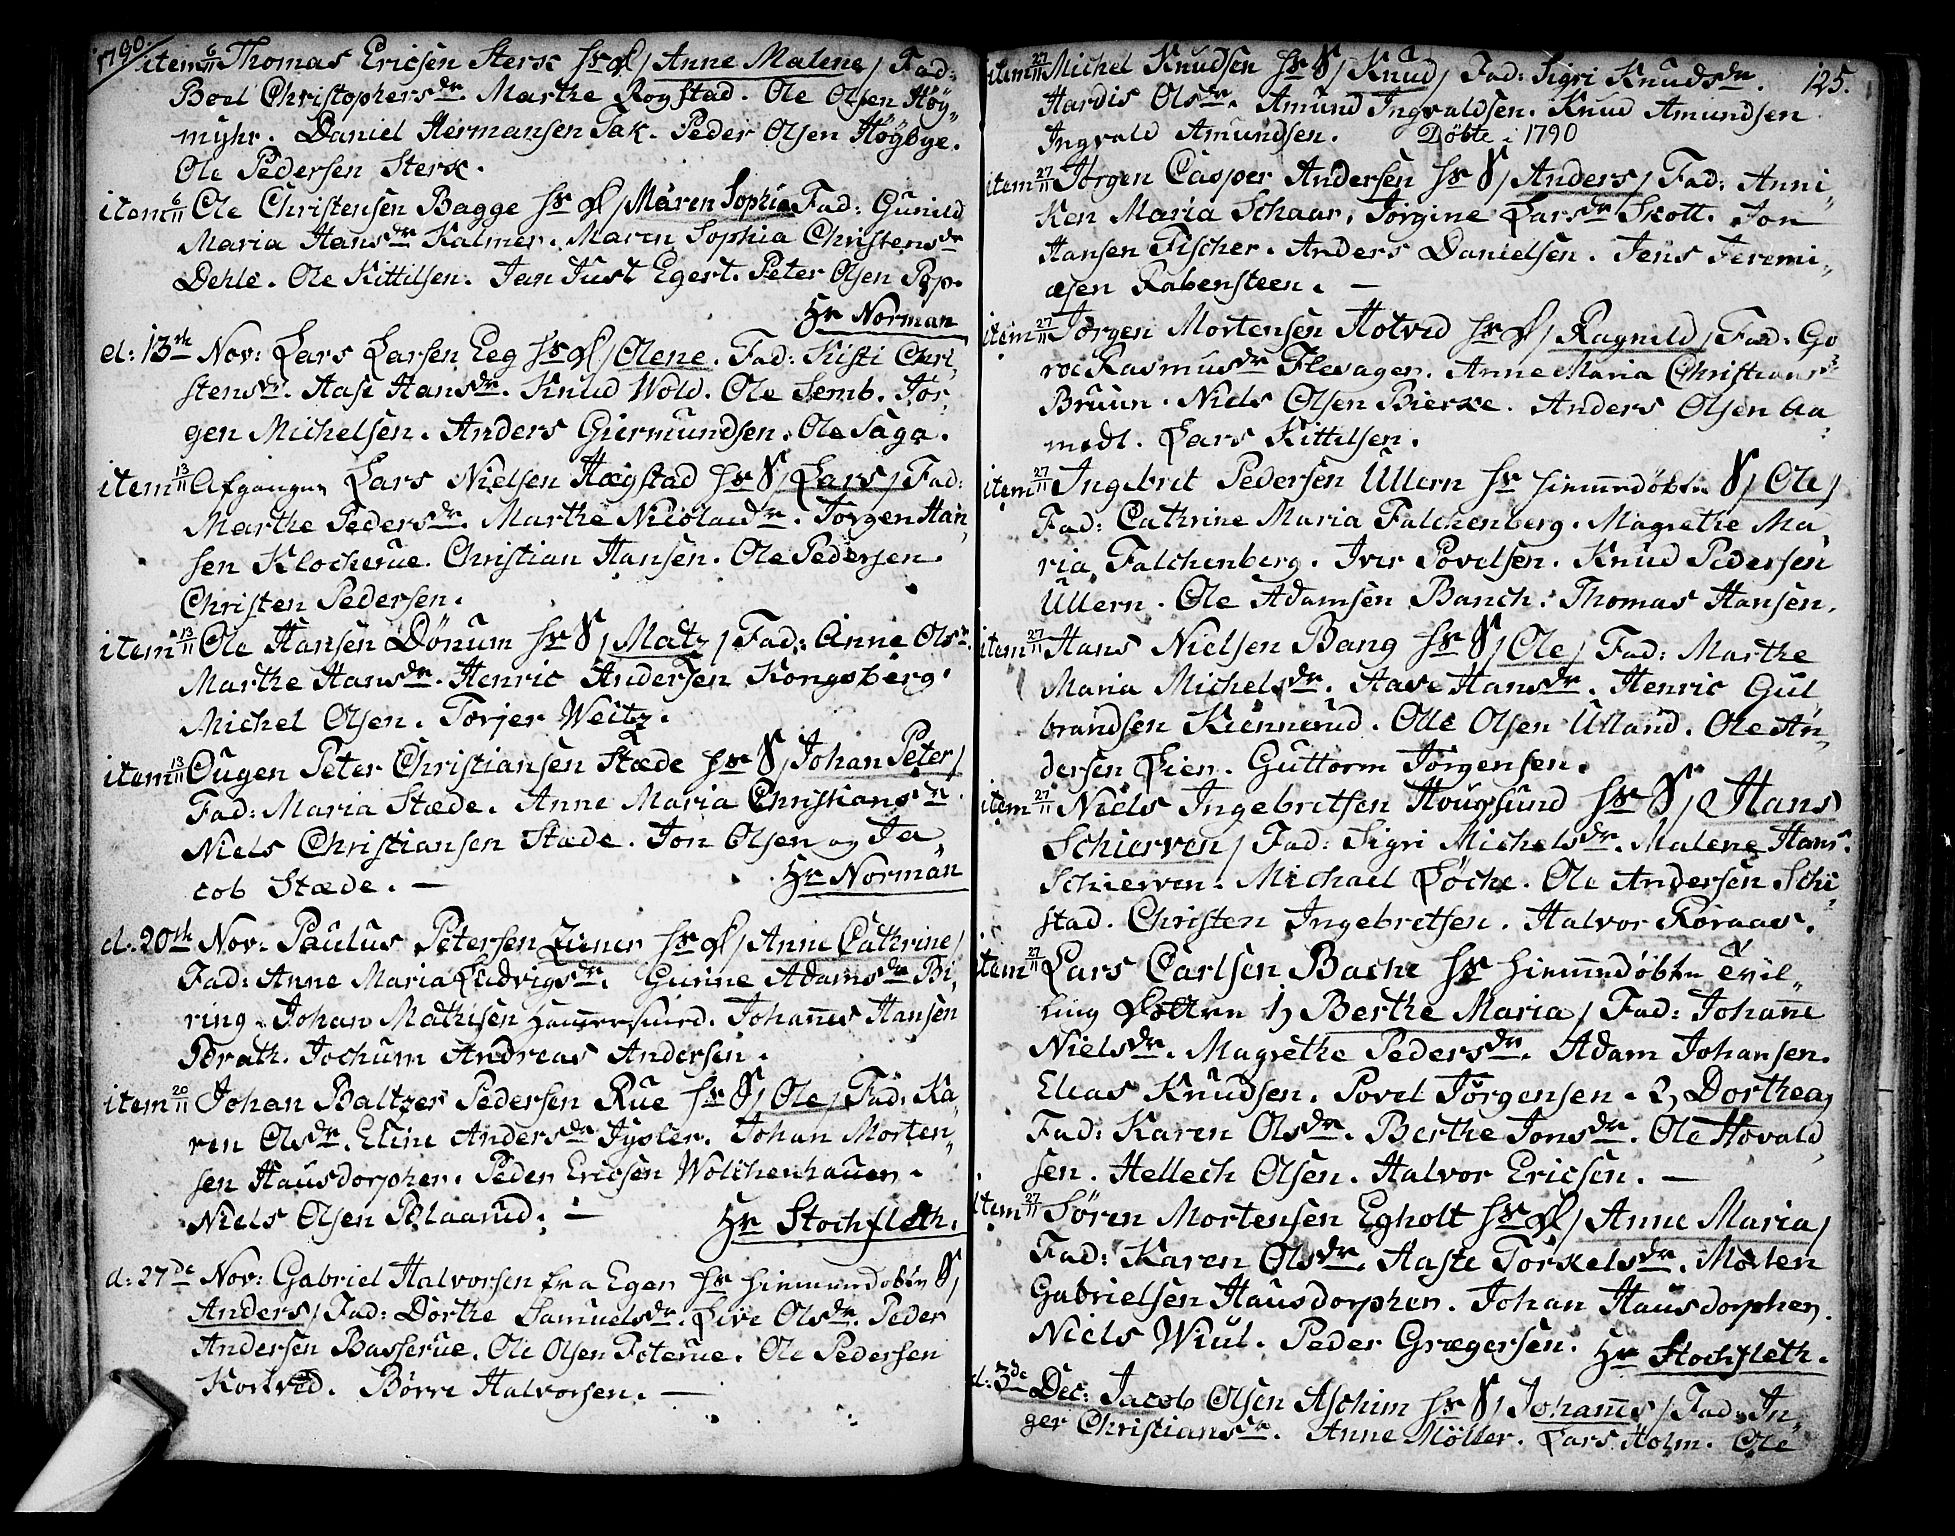 1790.
item 6/11 Thomas Ericsen Sterk Hr D / Anne Malene / Fad:
Boel Christophersdr. Marthe Rogstad. Ole Olsen Höy-
myhr. Daniel Hermansen Tak. Peder Olsen Höybye.
Ole Pedersen Sterk.
item 6/11 Ole Christensen Bagge Hr D / Maren Sophia Fad: Gunild
Maria Hansdr Kalmer. Maren Sophia Christensdr
Dehle. Ole Kittilsen. Jan Just Egert. Peter Olsen Pop.
Hr Norman
d: 13th Nov: Lars Larsen Eeg Hr D / Olene. Fad: Kisti Chri-
stensdr. Aase Hansdr. Knud Wold. Ole Semb. Jör-
gen Michelsen. Anders Giermundsen. Ole Saga.
item 13/11 Afgangne Lars Nielsen Hægstad Hr S / Lars / Fad:
Marthe Pedersdr. Marthe Nicolaidr. Jorgen Han-
sen Klocherue. Christian Hansen. Ole Pedersen
Christen Pedersen.
item 13/11 Ole Hansen Dönum Hr S / Matz / Fad: Anne Olsdr.
Marthe Hansdr. Henric Andersen Kongsberg.
Michel Olsen. Torjer Weitz.
item 13/11 Ougen Peter Christiansen Stæde Hr S / Johan Peter /
Fad: Maria Stæde. Anne Maria Christiansdr.
Niels Christiansen Stæde. Jon Olsen og Ja-
cob Stæde. —
Hr Norman
d: 20th Nov: Paulus Petersen Ziener Hr D / Anne Cathrine /
Fad: Anne Maria Ludvigsdr. Gurine Adamsdr Bi-
ring. Johan Mathisen Hammersmed. Johannes Hansen
Brath. Jochum Andreas Andersen.
item 20/11 Johan Baltzer Pedersen Rue Hr S / Ole / Fad: Ka-
ren Olsdr. Eline Andersdr Jysler. Johan Morten-
sen Hausdorpher. Peder Ericsen Wolchenhauer.
Niels Olsen Blaarud. —
Hr Stochfleth.
d: 27de Nov: Gabriel Halvorsen fra Eger Hr hiemmedöbte S /
Anders / Fad: Dorthe Samuelsdr. Live Olsdr. Peder
Andersen Basserue. Ole Olsen Foterue. Ole Pedersen
Korkved. Börre Halvorsen. —
125.
item 27/11 Michel Knudsen Hr S / Knud / Fad: Sigri Knudsdr.
Hardis Olsdr. Amund Ingvaldsen. Knud Amundsen
Ingvald Amundsen. Döbte i 1790
item 27/11 Jörgen Casper Andersen Hr S / Anders / Fad: Anni-
ken Maria Schaar. Jörgine Larsdr Skott. Jon
Hansen Fischer. Anders Danielsen. Jens Jeremi-
æsen Rabensteen. —
item 27/11 Jörgen Mortensen Hotved Hr D / Ragnild / Fad: Go
roe Rasmusdr Flesager. Anne Maria Christiansdr
Bruun. Niels Olsen Bierke. Anders Olsen Aa-
medt. Lars Kittilsen.
item 27/11 Ingebret Pedersen Ullern Hr hiemmedöbte S / Ole /
Fad: Cathrine Maria Falchenberg. Magrethe Ma-
ria Falchenberg. Iver Povelsen. Knud Pedersen
Ullern. Ole Adamsen Banch. Thomas Hansen.
item 27/11 Hans Nielsen Bang Hr S / Ole / Fad: Marthe
Maria Michelsdr. Aase Hansdr. Henric Gul-
brandsen Kiennerud. Olle Olsen Ulland. Ole An-
dersen Lien. Guttorm Jörgensen.
item 27/11 Niels Ingebretsen Hougsund Hr S / Hans
Schierven / Fad: Sigri Michelsdr. Malene Hans.
Schierven. Michael Löche. Ole Andersen Schi-
stad. Christen Ingebretsen. Halvor Roraas.
item 27/11 Lars Carlsen Bache Hr hiemmedöbte Tvil-
ling Döttre 1) Berthe Maria / Fad: Johanne
Nielsdr. Magrethe Pedersdr. Adam Johansen.
Elias Knudsen. Povel Jörgensen. 2) Dorthea,
Fad: Karen Olsdr. Berthe Jonsdr. Ole Hovald-
sen. Hellech Olsen. Halvor Ericsen. —
item 27/11 Sören Mortensen Egholt Hr D / Anne Maria /
Fad: Karen Olsdr. Haste Torkelsdr. Morten
Gabrielsen Hausdorpher. Johan Hausdorpher.
Niels Wiul. Peder Grægersen. Hr Stochfleth.
d: 3de Dec: Jacob Olsen Aschim Hr S / Johannes / Fad: In-
ger Christiansdr. Anne Möller. Lars Holm. Ole